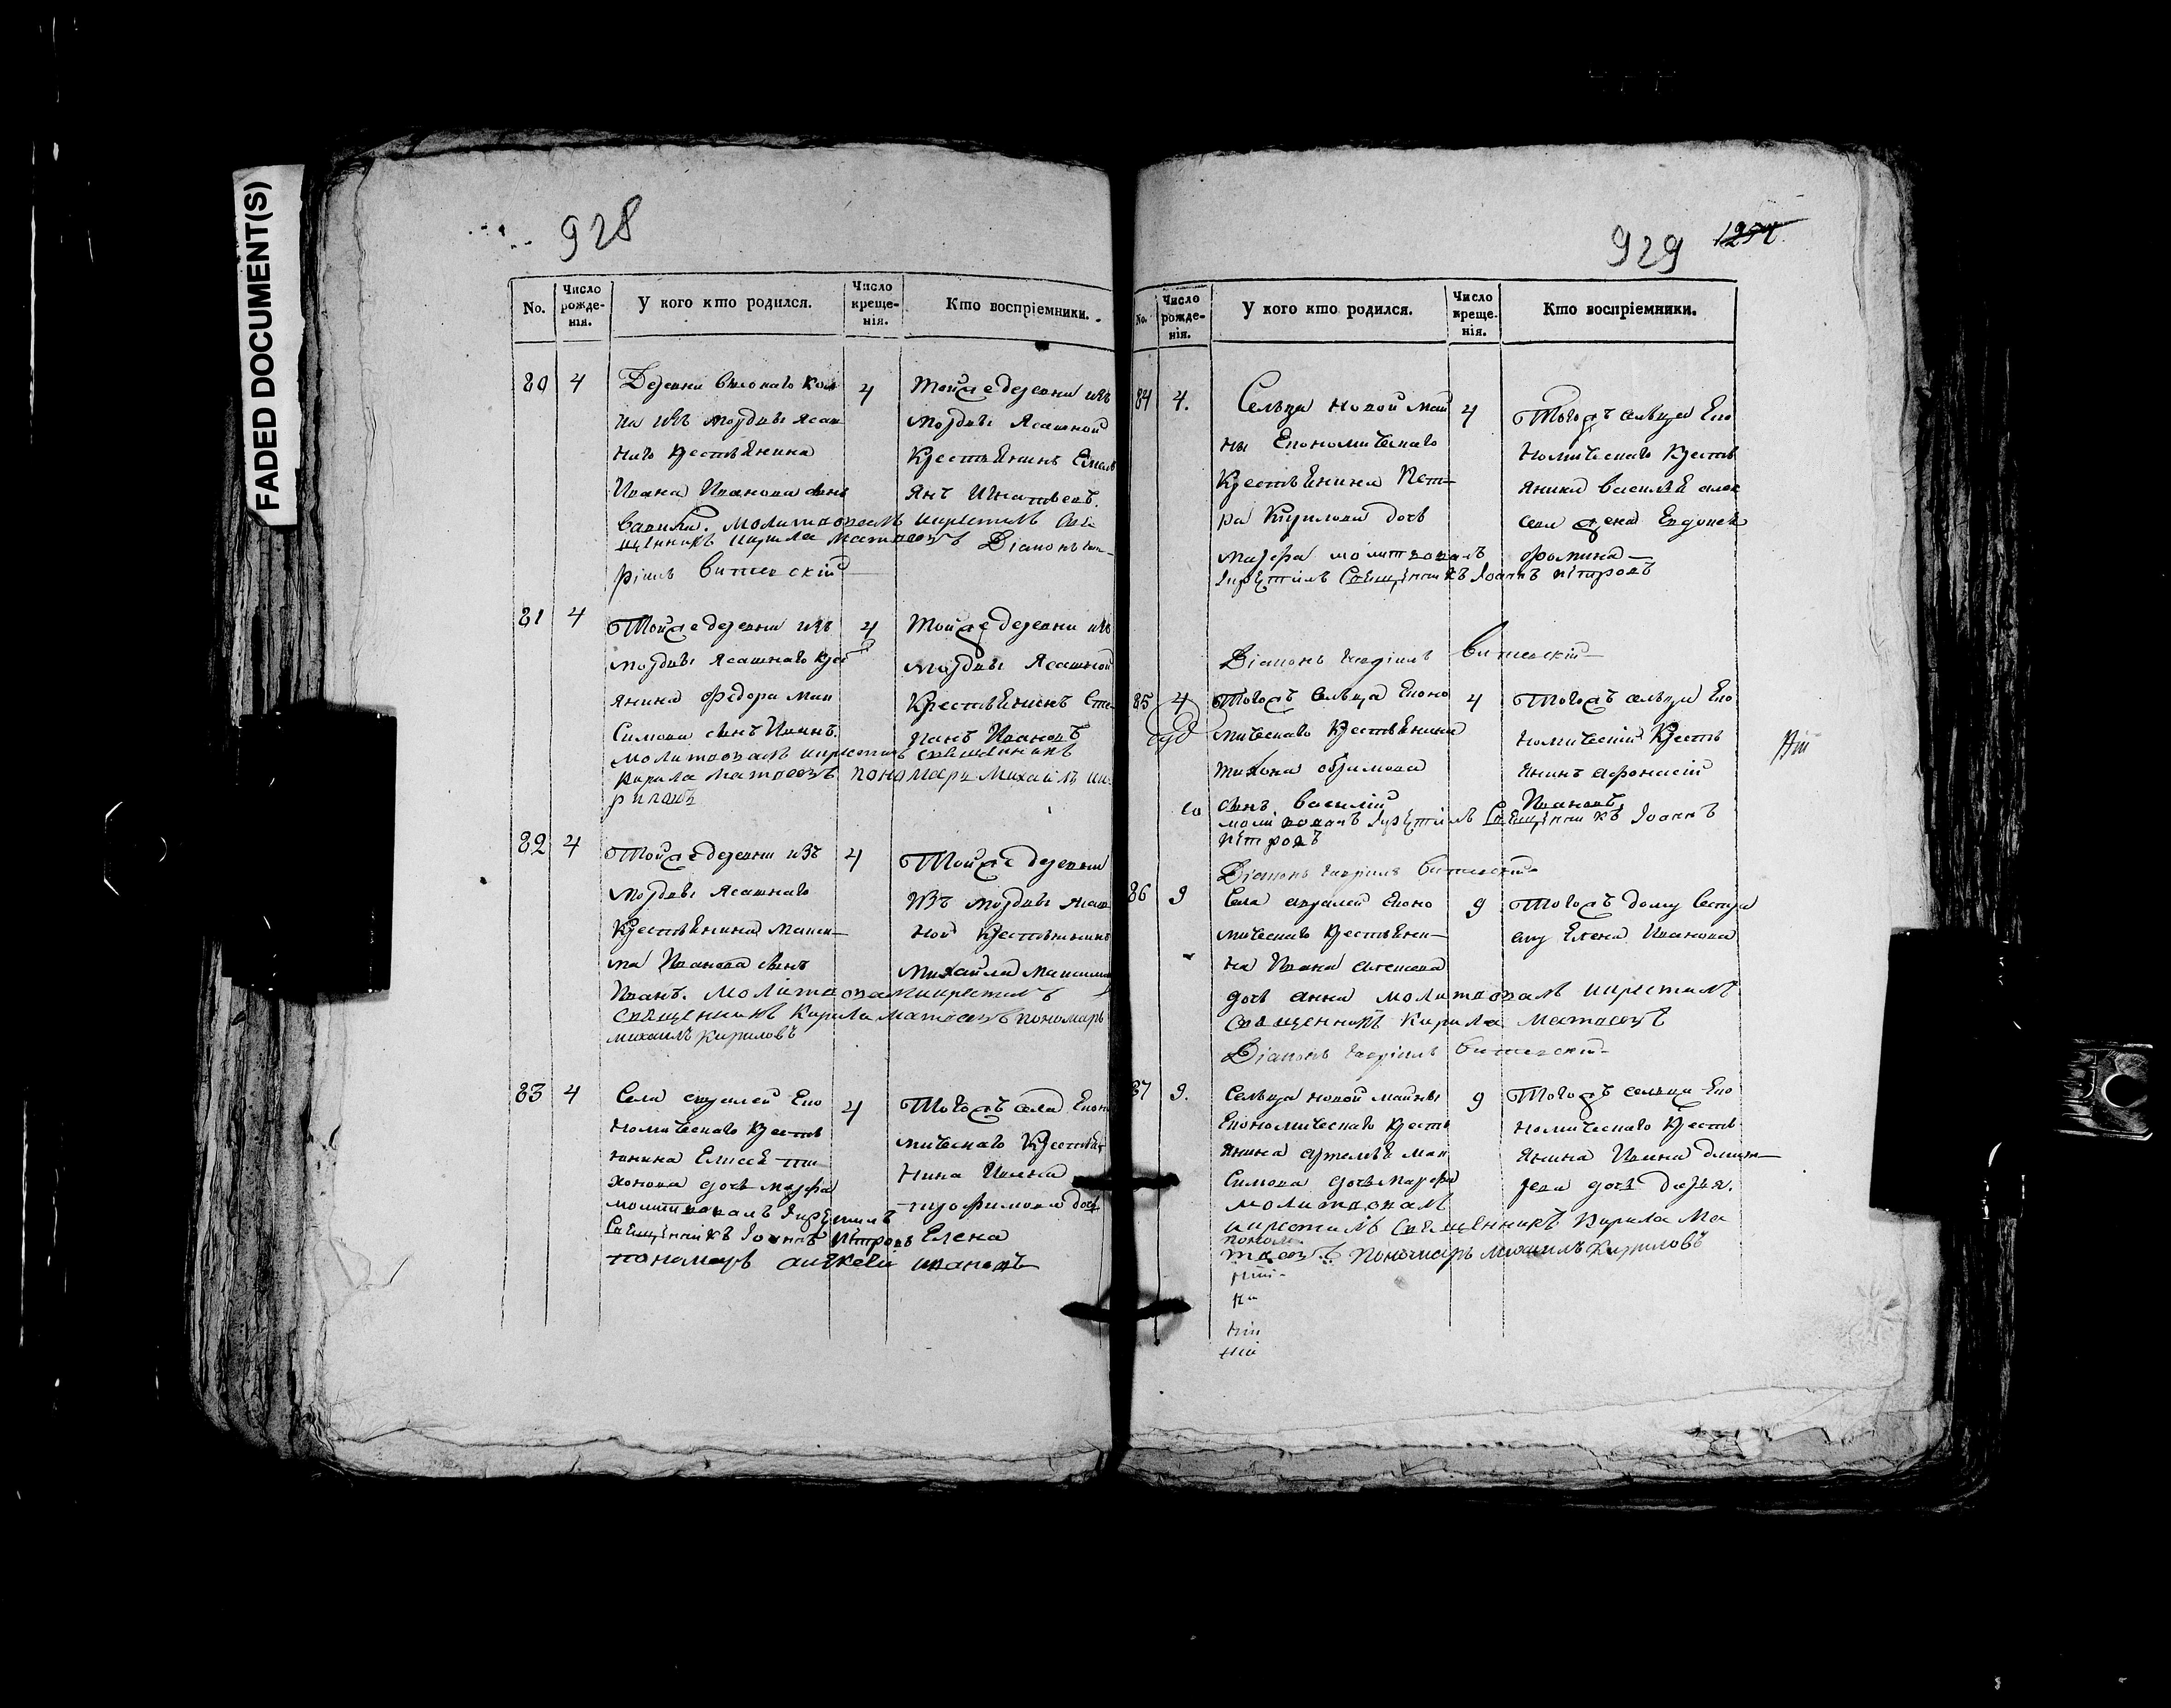 FADED DOCUMENT(S)
928
No.
Число рожденія.
У кого кто родился.
Число крещенія.
Кто воспріемники.
80 4
4
на изъ мордвы ясаш
наго крестьянина
Ивана Иванова сынъ
Вавила. молитвовалъ икрестилъ свя
щенникъ кирила матвеевъ Діаконъ гав
ріилъ Витевскій
Тойже деревни изъ
мордвы Ясашной
Крестьянинъ Емель
янъ Игнатьевъ.
81 4
Тойже деревни изъ
мордвы Ясашнаго крес
янина Федора Мак
симова сынъ Иванъ.
молитвовалъ икрестилъ священникъ
кирила матвеевъ пономарь михайлъ ки
риловъ
4
Тойже деревни изъ
мордвы Ясашной
Крестьянинъ Сте
панъ Ивановъ
82 4
Тойже деревни изъ
мордвы Ясашнаго
Крестьянина Макси
ма Иванова сынъ
Иванъ. молитвовалъ икрестилъ
священникъ Кирила матвеевъ пономарь
михаилъ кириловъ
4
Тойже деревни
изъ мордвы Ясаш
ной крестьянинъ
Михайла Максимо
83 4
Села Еко
номическаго кресть
янина Елисея ти
хонова дочь марфа
молитвовалъ икрестилъ
священникъ Іоаннъ петровъ
пономарь алексей ивановъ
4
Тогожъ села Екон
мическаго Крестья
нина Ивана
трофимова дочь
Елена
929
1257
No.
Число рожденія.
У кого кто родился.
Число крещенія.
Кто воспріемники.
84 4.
Сельца новой май
ны Економическаго
Крестьянина Пет
ра Кирилова дочь
марфа молитвовалъ
икрестилъ священникъ Іоаннъ петровъ
Діаконъ гавріилъ Витевскій
4
Тогожъ сельца Еко
номическаго Кресть
янина Василья алек
сева жена Евдокея
фомина
85 4
Тогожъ сельца Еконо
мическаго крестьянина
тихона
сынъ Василій
икрестилъ священникъ Іоаннъ
петровъ
Діаконъ гавріилъ Витевскій
4
Тогожъ сельца Еко
номическій Кресть
янинъ афонасій
Ивановъ
86 9
Села Еконо
мическаго крестьяни
на Ивана
дочь анна молитвовалъ икрестилъ
священникъ Кирила матвеевъ
Діаконъ гавріилъ Витевскій
9
Тогожъ дому сестра
ему Елена Иванова
87 9.
Сельца новой майны
Економическаго кресть
янина артемья мак
симова дочь марфа
молитвовалъ
икрестилъ священникъ Кирила Ма
поном
твеевъ пономарь михаилъ Кириловъ
9
Тогожъ сельца Еко
номическаго кресть
янина Ивана дмит
рева дочь дарья.